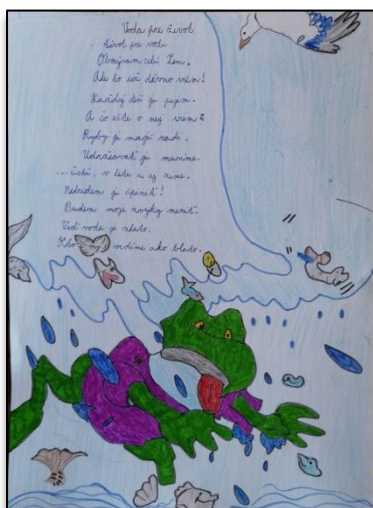 Voda pre život
Život pre vodu
Obmývam celú Zem.
Ale to už dávno viem!
Každý deň ju pijem.
A čo ešte o nej viem?
Ryby ju majú radi.
Udržiavať ju musíme.
... čistú, v lete aj v zime.
Nebudem ju špiniť!
Budem moje zvyky meniť.
Veď voda je zlato.
Kto z nej vidíme ako blato.